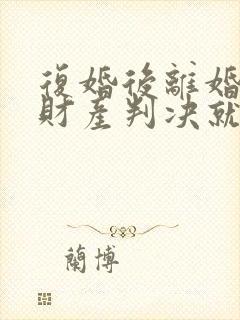 復婚後離婚
財產判決就
蘭博